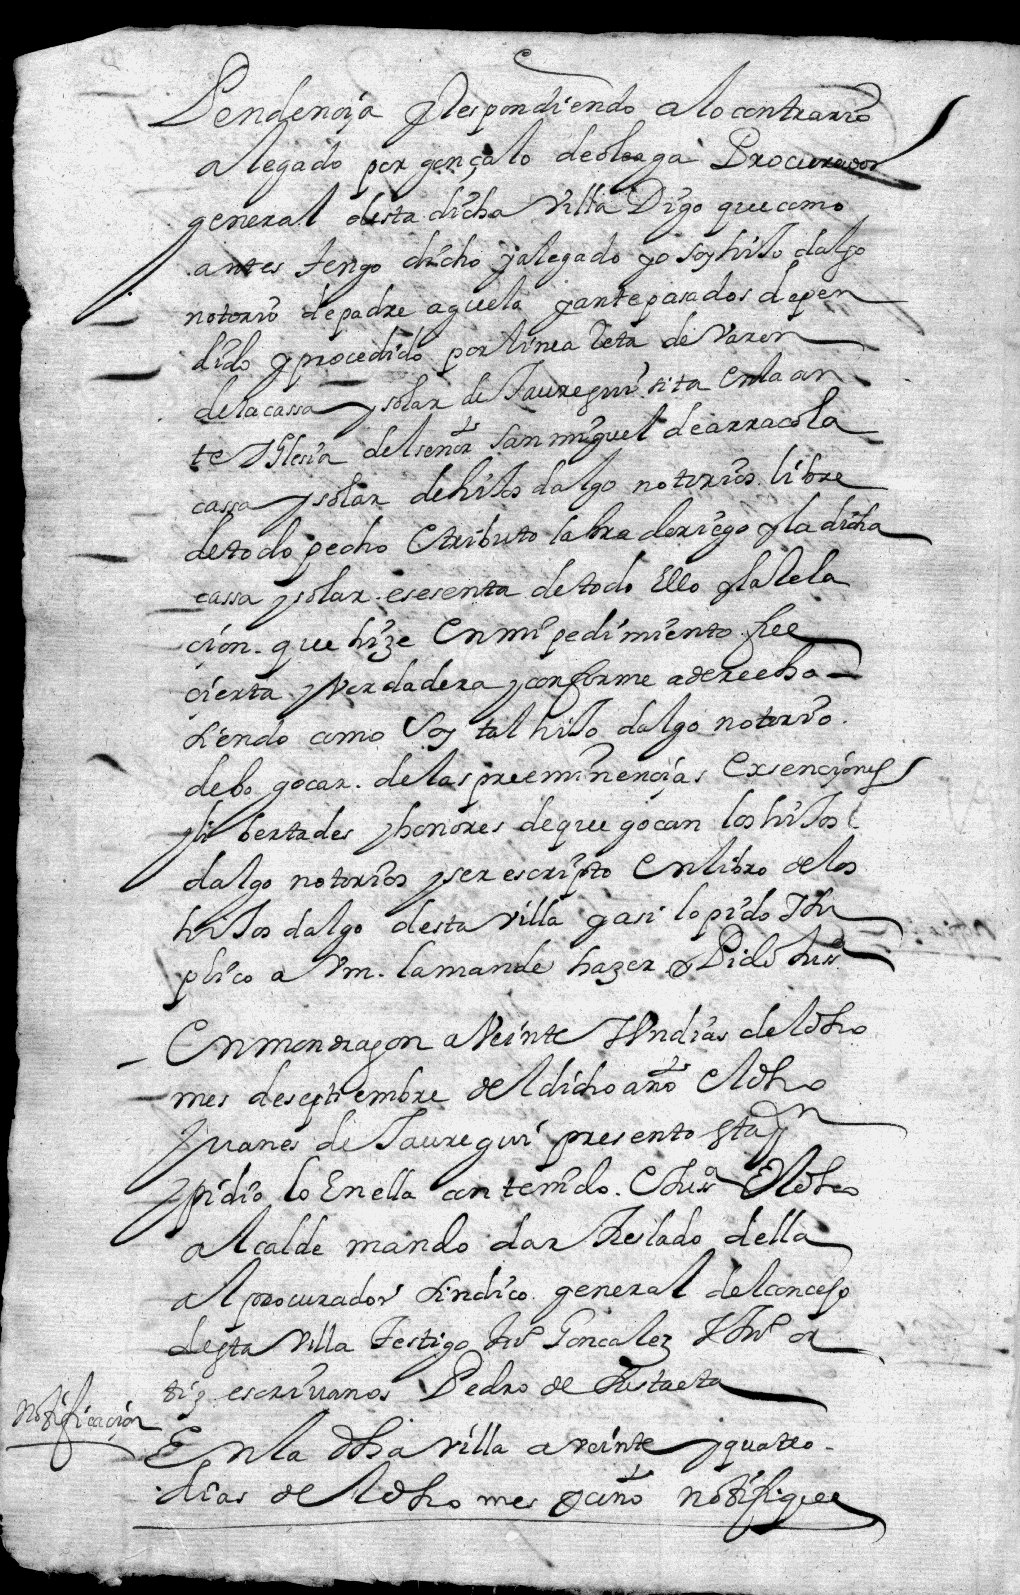 Pendençia y Respondiendo a lo contrario
alegado por gonçalo de oleaga Procurador
general desta dicha Villa Digo que como
antes tengo dicho y alegado yo soy hiJo dalgo
notorio de padre aguelo y antepasados depen
dido y procedido por linea Reta de Varon
de la cassa y solar de Jauregui sita en la an
te Yglesia del señor san miguel de arraçola
cassa y solar de hiJos dalgo notorios libre
de todo pecho E tributo labradoriego y la dicha
cassa y solar es esenta de todo Ello y la Rela
çion que hize En mi pedimiento fue
çierta y Verdadera y conforme a derecho
siendo como Soy tal hiJo dalgo notorio
debo goçar de las preeminençias Exsençiones
y libertades y honores de que goçan los hiJos
dalgo notorios y ser escripto En libro de los
hiJos dalgo desta villa y asi lo pido y Su
plico a Vm. la mande hazer y Pido Jussª
En mondragon a Veinte y Un dias del dho
mes de septiembre del dicho año El dho
Juanes de Jauregui presento esta
y pidio lo En ella contenido E Jussª El dho
alcalde mando dar treslado della
al procurador sindico general del conçeJo
desta Villa Testigo Juº Gonçalez y Juº or
tiz escriuanos Pedro de
Notificaçion
En la dha villa a veinte y quatro
dias del dho mes y año notifique